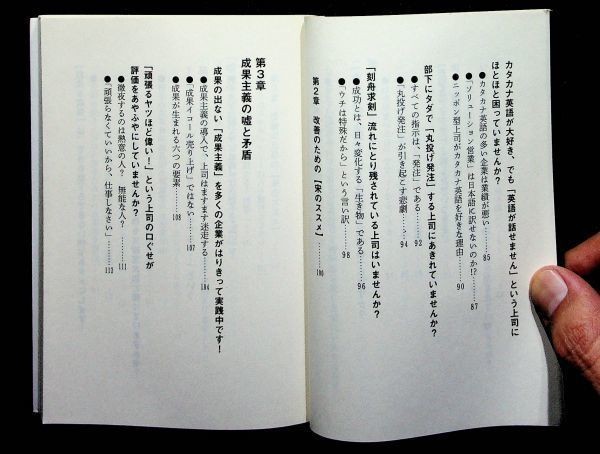 カタカナ英語が大好き、でも「英語が話せません」という上司に
ほとほと困っていませんか？
●カタカナ英語の多い企業は業績が悪い……85
●「ソリューション営業」は日本語に訳せないのか!?……87
●ニッポン型上司がカタカナ英語を好きな理由……90
部下にタダで「丸投げ発注」する上司にあきれていませんか？
●すべての指示は、「発注」である……92
●「丸投げ発注」が引き起こす悲劇……94
「刻舟求剣」流れにとり残されている上司はいませんか？
●成功とは、日々変化する「生き物」である……96
●「ウチは特殊だから」という言い訳……98
第2章　改善のための【宋のススメ】……100
第3章
成果主義の嘘と矛盾
成果の出ない「成果主義」を多くの企業がはりきって実践中です！
●成果主義の導入で、上司はますます迷走する……104
●成果イコール売り上げ」ではない……107
●成果が生まれる六つの要素……108
「頑張るヤツほど偉い！」という上司の口ぐせが
評価をあやふやにしていませんか？
●徹夜するのは熱意の人？　無能な人？……111
●「頑張らなくていいから、仕事しなさい」……113